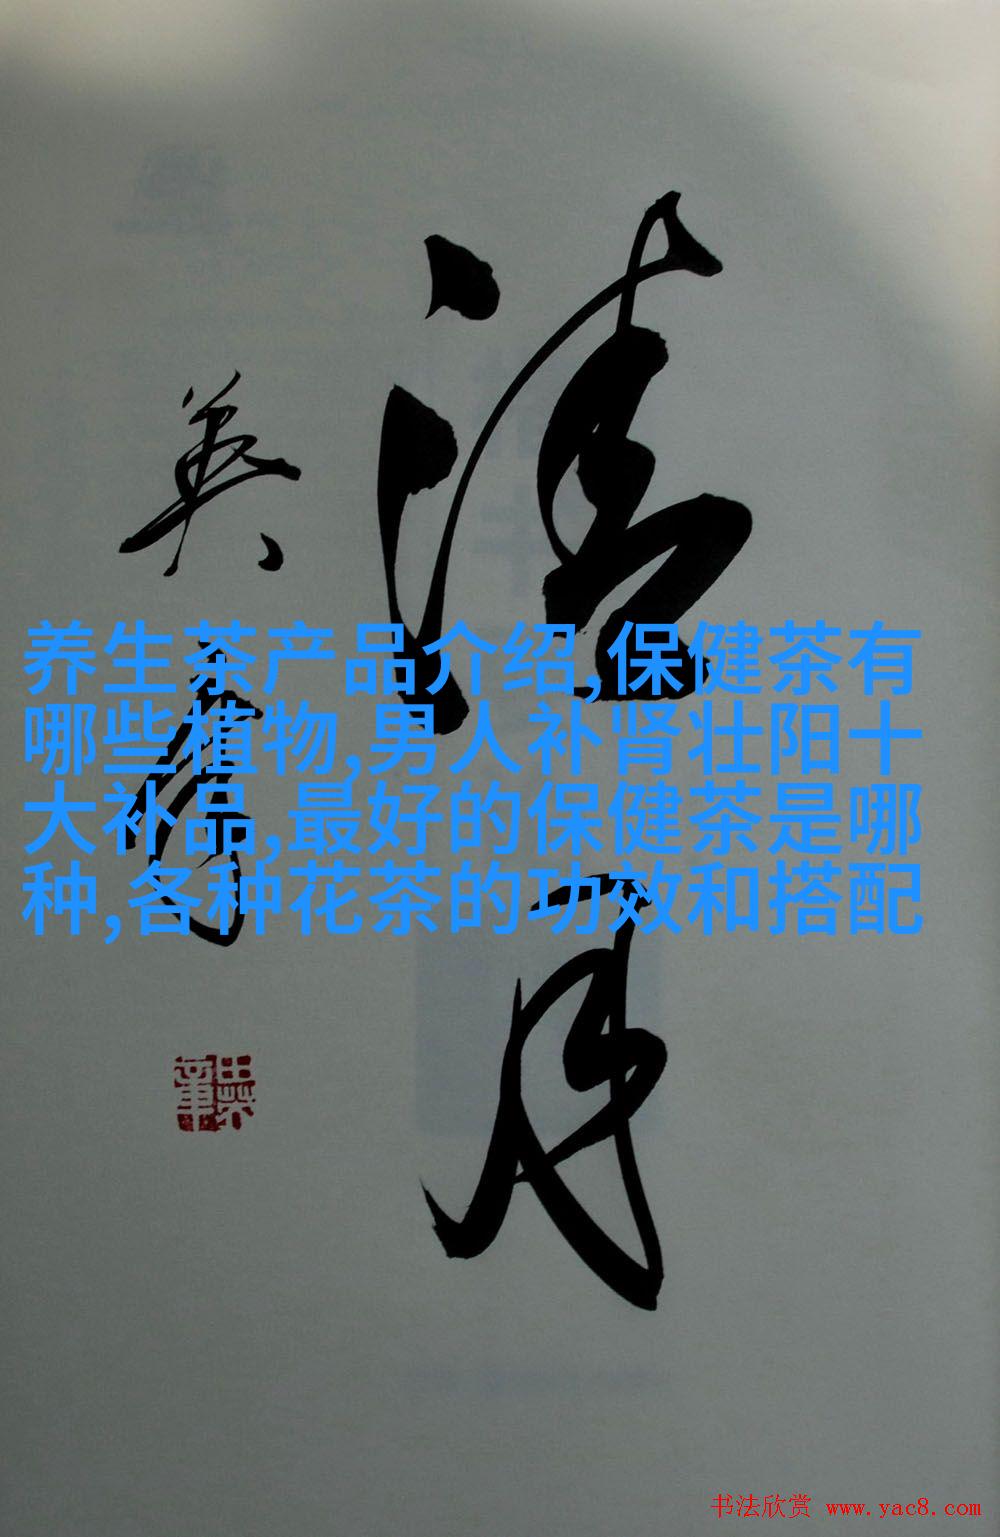 清月
养生茶产品介绍,保健茶有
哪些植物,男人补肾壮阳十
大补品,最好的保健茶是哪
种,各种花茶的功效和搭配
书法欣赏 www.yac8.com